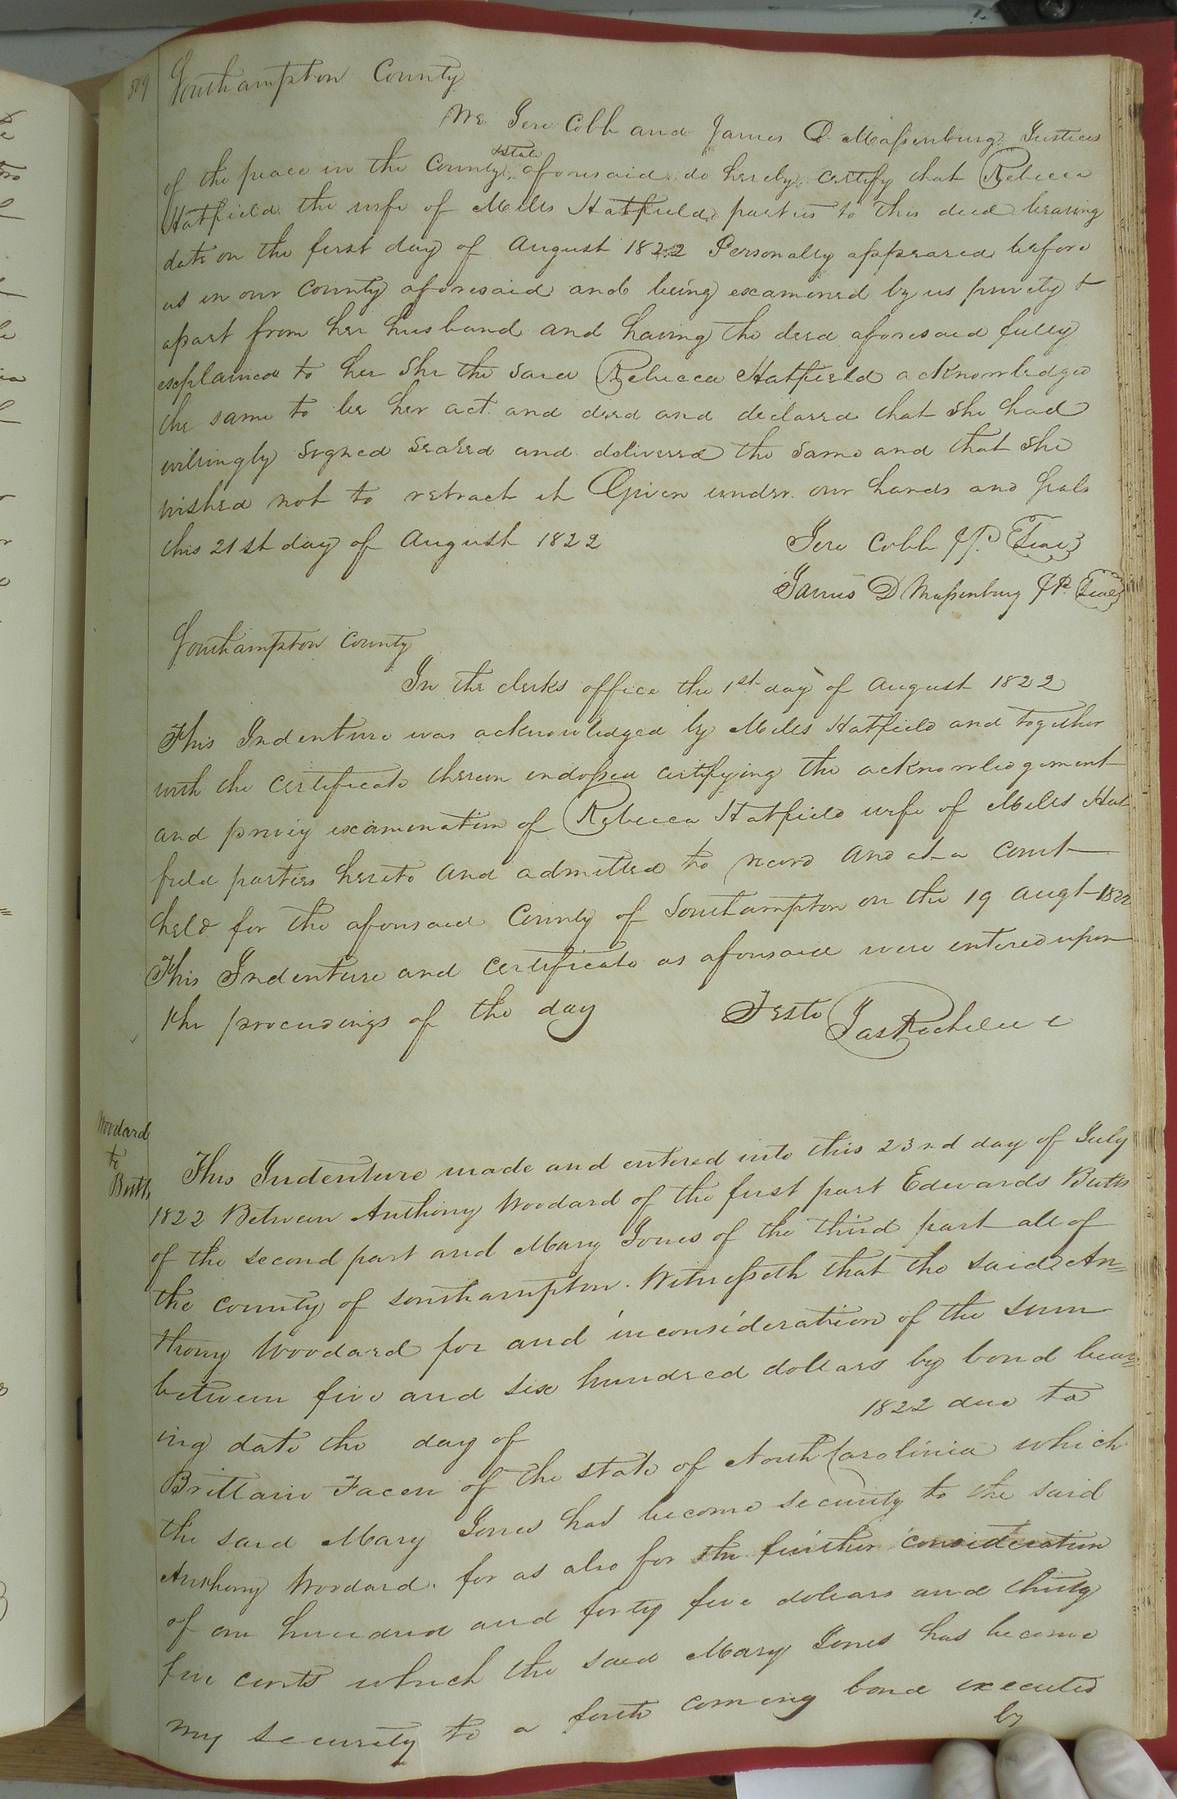 Southampton County
We Jere Cobb and James D. Massenburg Justices
of the peace in the County & state aforesaid do hereby certify that Rebecca
Hatfield the wife of Miles Hatfield parties to this deed bearing
date on the first day of August 1822 Personally appeared before
us in our County aforesaid and being examined by us privety &
apart from her husband and having the deed aforesaid fully
explained to her She the said Rebecca Hatfield acknowledged
the same to be her act and deed and declared that she had
willingly signed sealed and delivered the same and that she
wished not to retract it Given under our hands and seals
this 21st day of August 1822 Jere Cobb JP. Seal
James D Massenburg JP. Seal
Southampton County
In the clerks office the 1st day of August 1822
This Indenture was acknowledged by Miles Hatfield and together
with the certificate thereon endorsed certifying the acknowledgement
and privy examination of Rebecca Hatfield wife of Miles Hat
field parties hereto and admitted to record and at a Court
held for the aforesaid County of Southampton on the 19 augt 1822
This Indenture and certificate as aforesaid were entered upon
the proceedings of the day Teste Jas Rochelle c
Woodard
to
Butts
This Indenture made and entered into this 23nd day of July
1822 Between Anthony Woodard of the first part Edwards Butts
of the second part and Mary Jones of the third part all of
the county of southampton. Witnesseth that the said An=
thony Woodard for and inconsideration of the sum
between five and six hundred dollars by bond bear=
ing date the day of 1822 due to
Brittain Facen of the state of North Carolinia which
the said Mary Jones has become security to the said
Anthony Woodard. for as also for the further consideration
of one hundred and forty five dollars and thirty
five cents which the said Mary Jones has become
my security to a forth coming bond executed
by